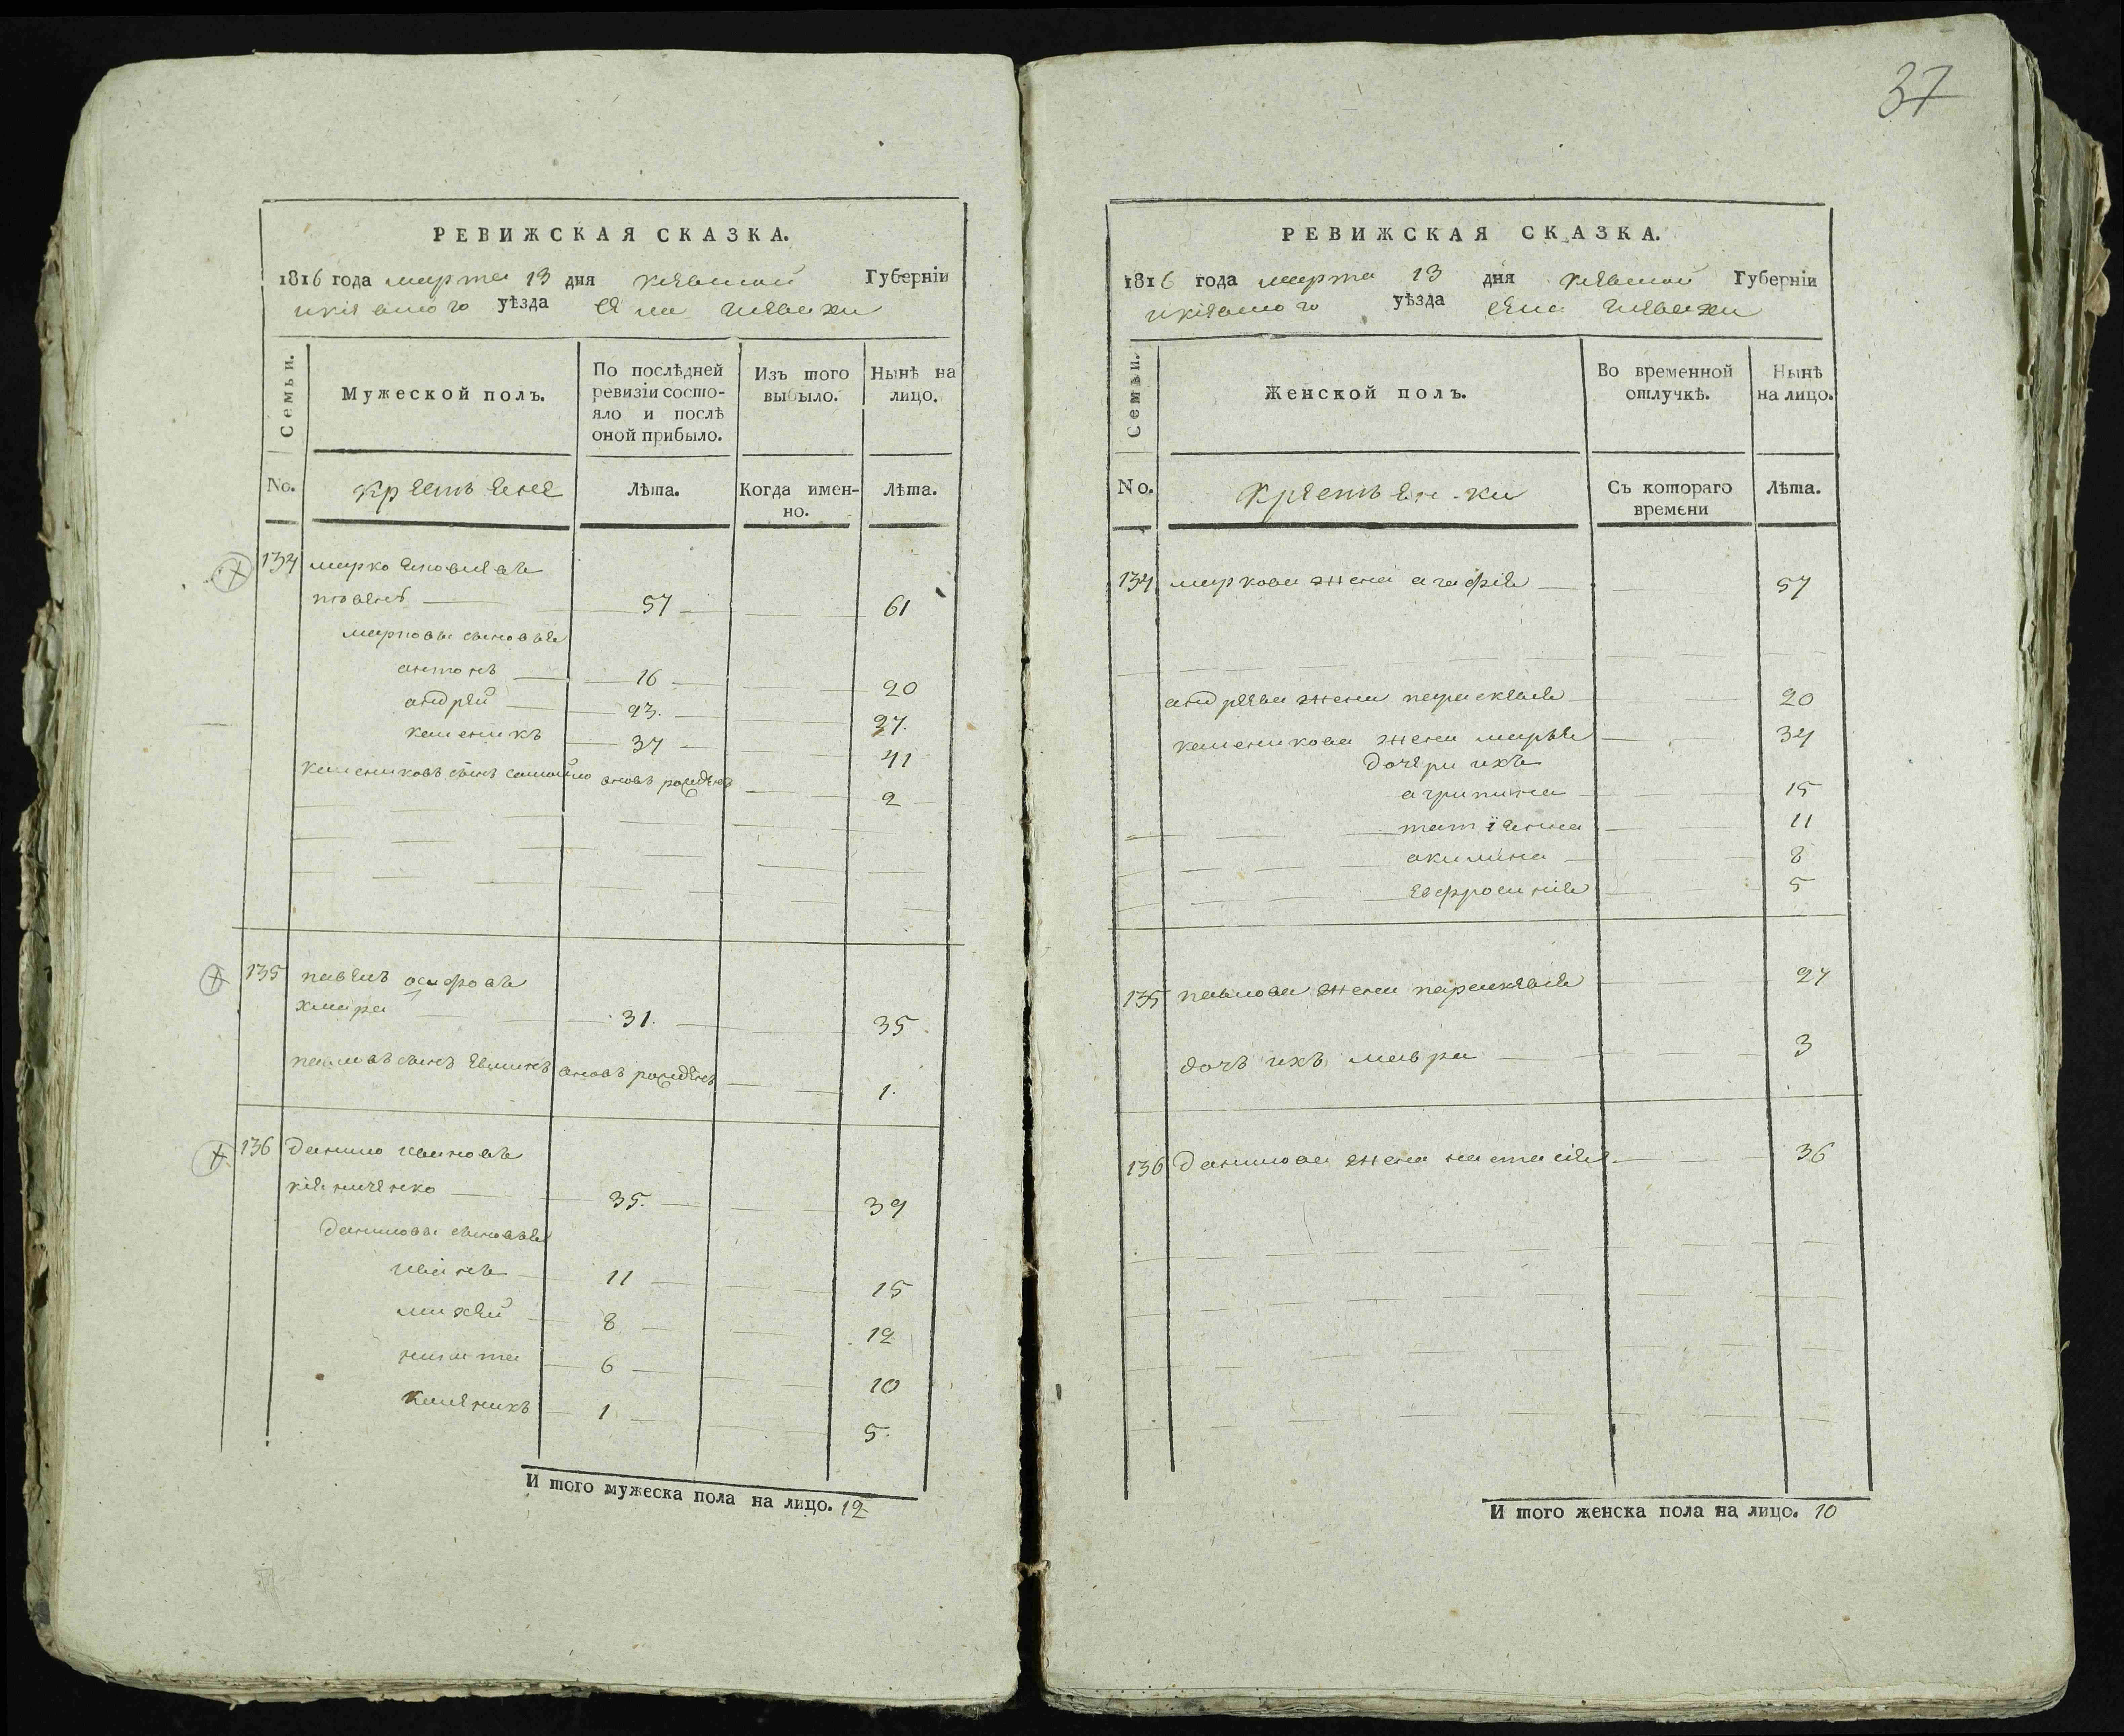 37
РЕВИЖСКАЯ СКАЗКА.
1816 года марта 13 дня киевской Губернiи
уѣзда села
Семьи.
Мужеской полъ.
По послѣдней ревизiи состояло и послѣ оной прибыло.
Изъ того выбыло.
Нынѣ на лицо.
No.
крестьяне
Лѣта.
Когда именно.
Лѣта.
134 марко
57 61
марковы сыновья
антонъ 16 20
андрей 23. 27.
37 41
сынъ самойло вновь рожденъ 2
135 павелъ осиповъ
хмара 31. 35.
павловъ сынъ вновь рожденъ 1.
136 данило ивановъ
35. 39
даниловы сыновья
иванъ 11 15
михей 8 12
никита 6 10
1 5.
И того мужеска пола на лицо. 12
РЕВИЖСКАЯ СКАЗКА.
1816 года марта 13 дня киевской Губернiи
уѣзда села
Семьи.
Женской полъ.
Во временной отлучкѣ.
Нынѣ на лицо.
No.
крестьянки
Съ котораго времени
Лѣта.
134 маркова жена агафiя 57
андреева жена параскевiя 20
жена марья 34
дочери ихъ
агрипина 15
татiянна 11
акилина 8
евфросинiя 5
135 павлова жена параскевiя 27
дочь ихъ мавра 3
136 данилова жена настасiя 36
И того женска пола на лицо. 10